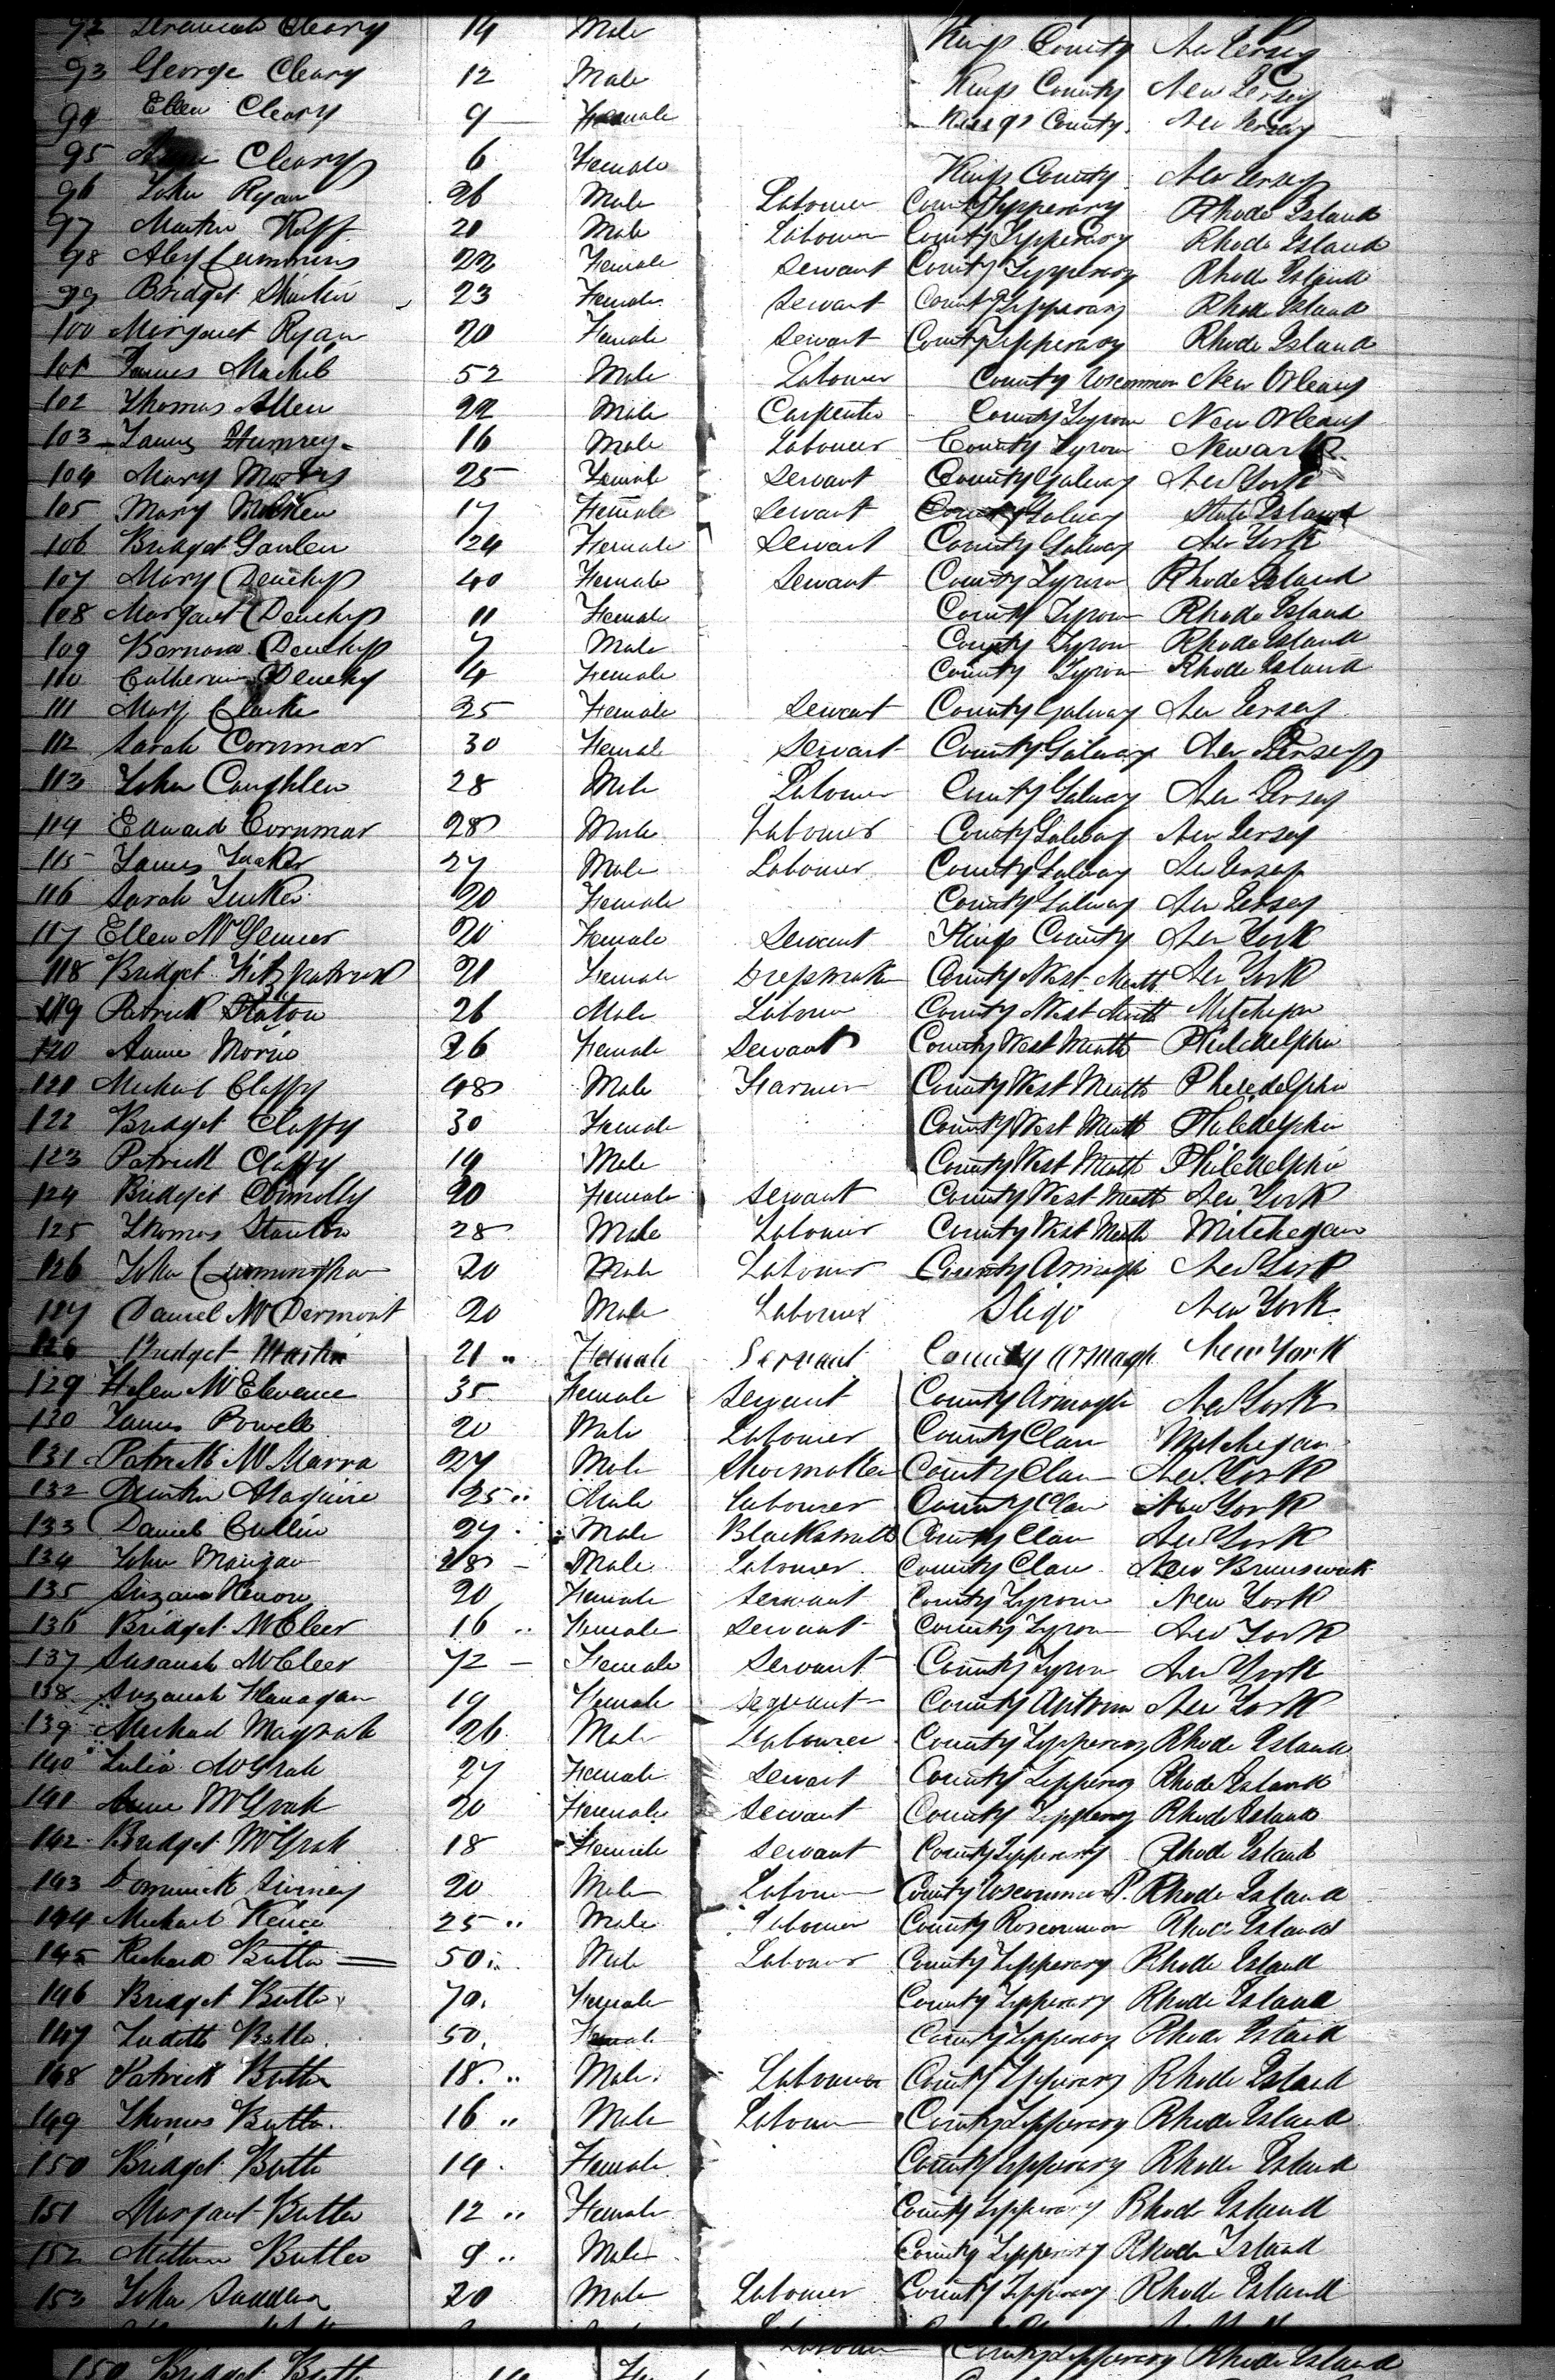 92 Cleary 14 Male Kings County New Jersey
93 George Cleary 12 Male Kings County New Jersey
94 Ellen Cleary 9 Female Kings County New Jersey
95 Cleary 6 Female Kings County New Jersey
96 John Ryan 26 Male Labourer County Tipperary Rhode Island
97 Martin 20 Male Labourer County Tipperary Rhode Island
98 Aley Cummins 22 Female Servant County Tipperary Rhode Island
99 Bridget 23 Female Servant County Tipperary Rhode Island
100 Margaret Ryan 20 Female Servant County Tipperary Rhode Island
101 James 52 Male Labourer County Roscommon New Orleans
102 Thomas Allen 22 Male Carpenter County Tyrone New Orleans
103 James Humrey 16 Male Labourer County Tyrone Newark
104 Mary 25 Female Servant County Galway New York
105 Mary 17 Female Servant County Galway State Island
106 Bridget Ganlen 24 Female Servant County Galway New York
107 Mary Deuchy 40 Female Servant County Tyrone Rhode Island
108 Margaret Deuchy 11 Female County Tyrone Rhode Island
109 Bernard Deuchy 7 Male County Tyrone Rhode Island
110 Catherine Deuchy 4 Female County Tyrone Rhode Island
111 Mary Clarke 25 Female Servant County Galway New Jersey
112 Sarah Cornmar 30 Female Servant County Galway New Jersey
113 John Coughlen 28 Male Labourer County Galway New Jersey
114 Edward Cornmar 28 Male Labourer County Galway New Jersey
115 James Tucker 27 Male Labourer County Galway New Jersey
116 Sarah Tucker 20 Female County Galway New Jersey
117 Ellen 20 Female Servant Kings County New York
118 Bridget Fitzpatrick 21 Female Dressmaker County West Meath New York
119 Patrick 26 Male Labourer County West Meath Mitchegan
120 Anne 26 Female Servant County West Meath Philedelphia
121 Michael Claffy 48 Male Farmer County West Meath Pheledelphia
122 Bridget Claffy 30 Female County West Meath Philedelphia
123 Patrick Claffy 19 Male County West Meath Philedelphia
124 Bridget Connolly 20 Female Servant County West Meath New York
125 Thomas Staunton 28 Male Labourer County West Meath Mitchegan
126 John Cunningham 20 Male Labourer County Armagh New York
127 Daniel McDermont 20 Male Labourer Sligo New York
128 Bridget Martin 21 Female Servant County Armagh New York
129 Helen McElevance 35 Female Servant County Armagh New York
130 James Powell 20 Male Labourer County Clare Mitchegan
131 Patrick McMarra 27 Male Shoemaker County Clare New York
132 Maguire 25 Male Labourer County Clare New York
133 Daniel Cullin 27 Male Blacksmith County Clare New York
134 John Mangan 28 Male Labourer County Clare New Brunswick
135 20 Female Servant County Tyrone New York
136 Bridget McCleer 16 Female Servant County Tyrone New York
137 Susanah McCleer 72 Female Servant County Tyrone New York
138 Suzanah Flanagan 19 Female Servant County Antrim New York
139 Michael Magrah 26 Male Labourer County Tipperary Rhode Island
140 Julia McGrah 27 Female Servant County Tipperary Rhode Island
141 Anne McGrah 20 Female Servant County Tipperary Rhode Island
142 Bridget McGrah 18 Female Servant County Tipperary Rhode Island
143 Dominick 20 Male Labourer County Roscommon Rhode Island
144 Michael 25 Male Labourer County Roscommon Rhode Island
145 Richard Butler 50 Male Labourer County Tipperary Rhode Island
146 Bridget Butler 70 Female County Tipperary Rhode Island
147 Judith Butler 50 Female County Tipperary Rhode Island
148 Patrick Butler 18 Male Labourer County Tipperary Rhode Island
149 Thomas Butler 16 Male Labourer County Tipperary Rhode Island
150 Bridget Butler 14 Female County Tipperary Rhode Island
151 Margaret Butler 12 Female County Tipperary Rhode Island
152 Butler 9 Male County Tipperary Rhode Island
153 John 20 Male Labourer County Tipperary Rhode Island
Labourer County Tipperary Rhode Island
150 Bridget Butler